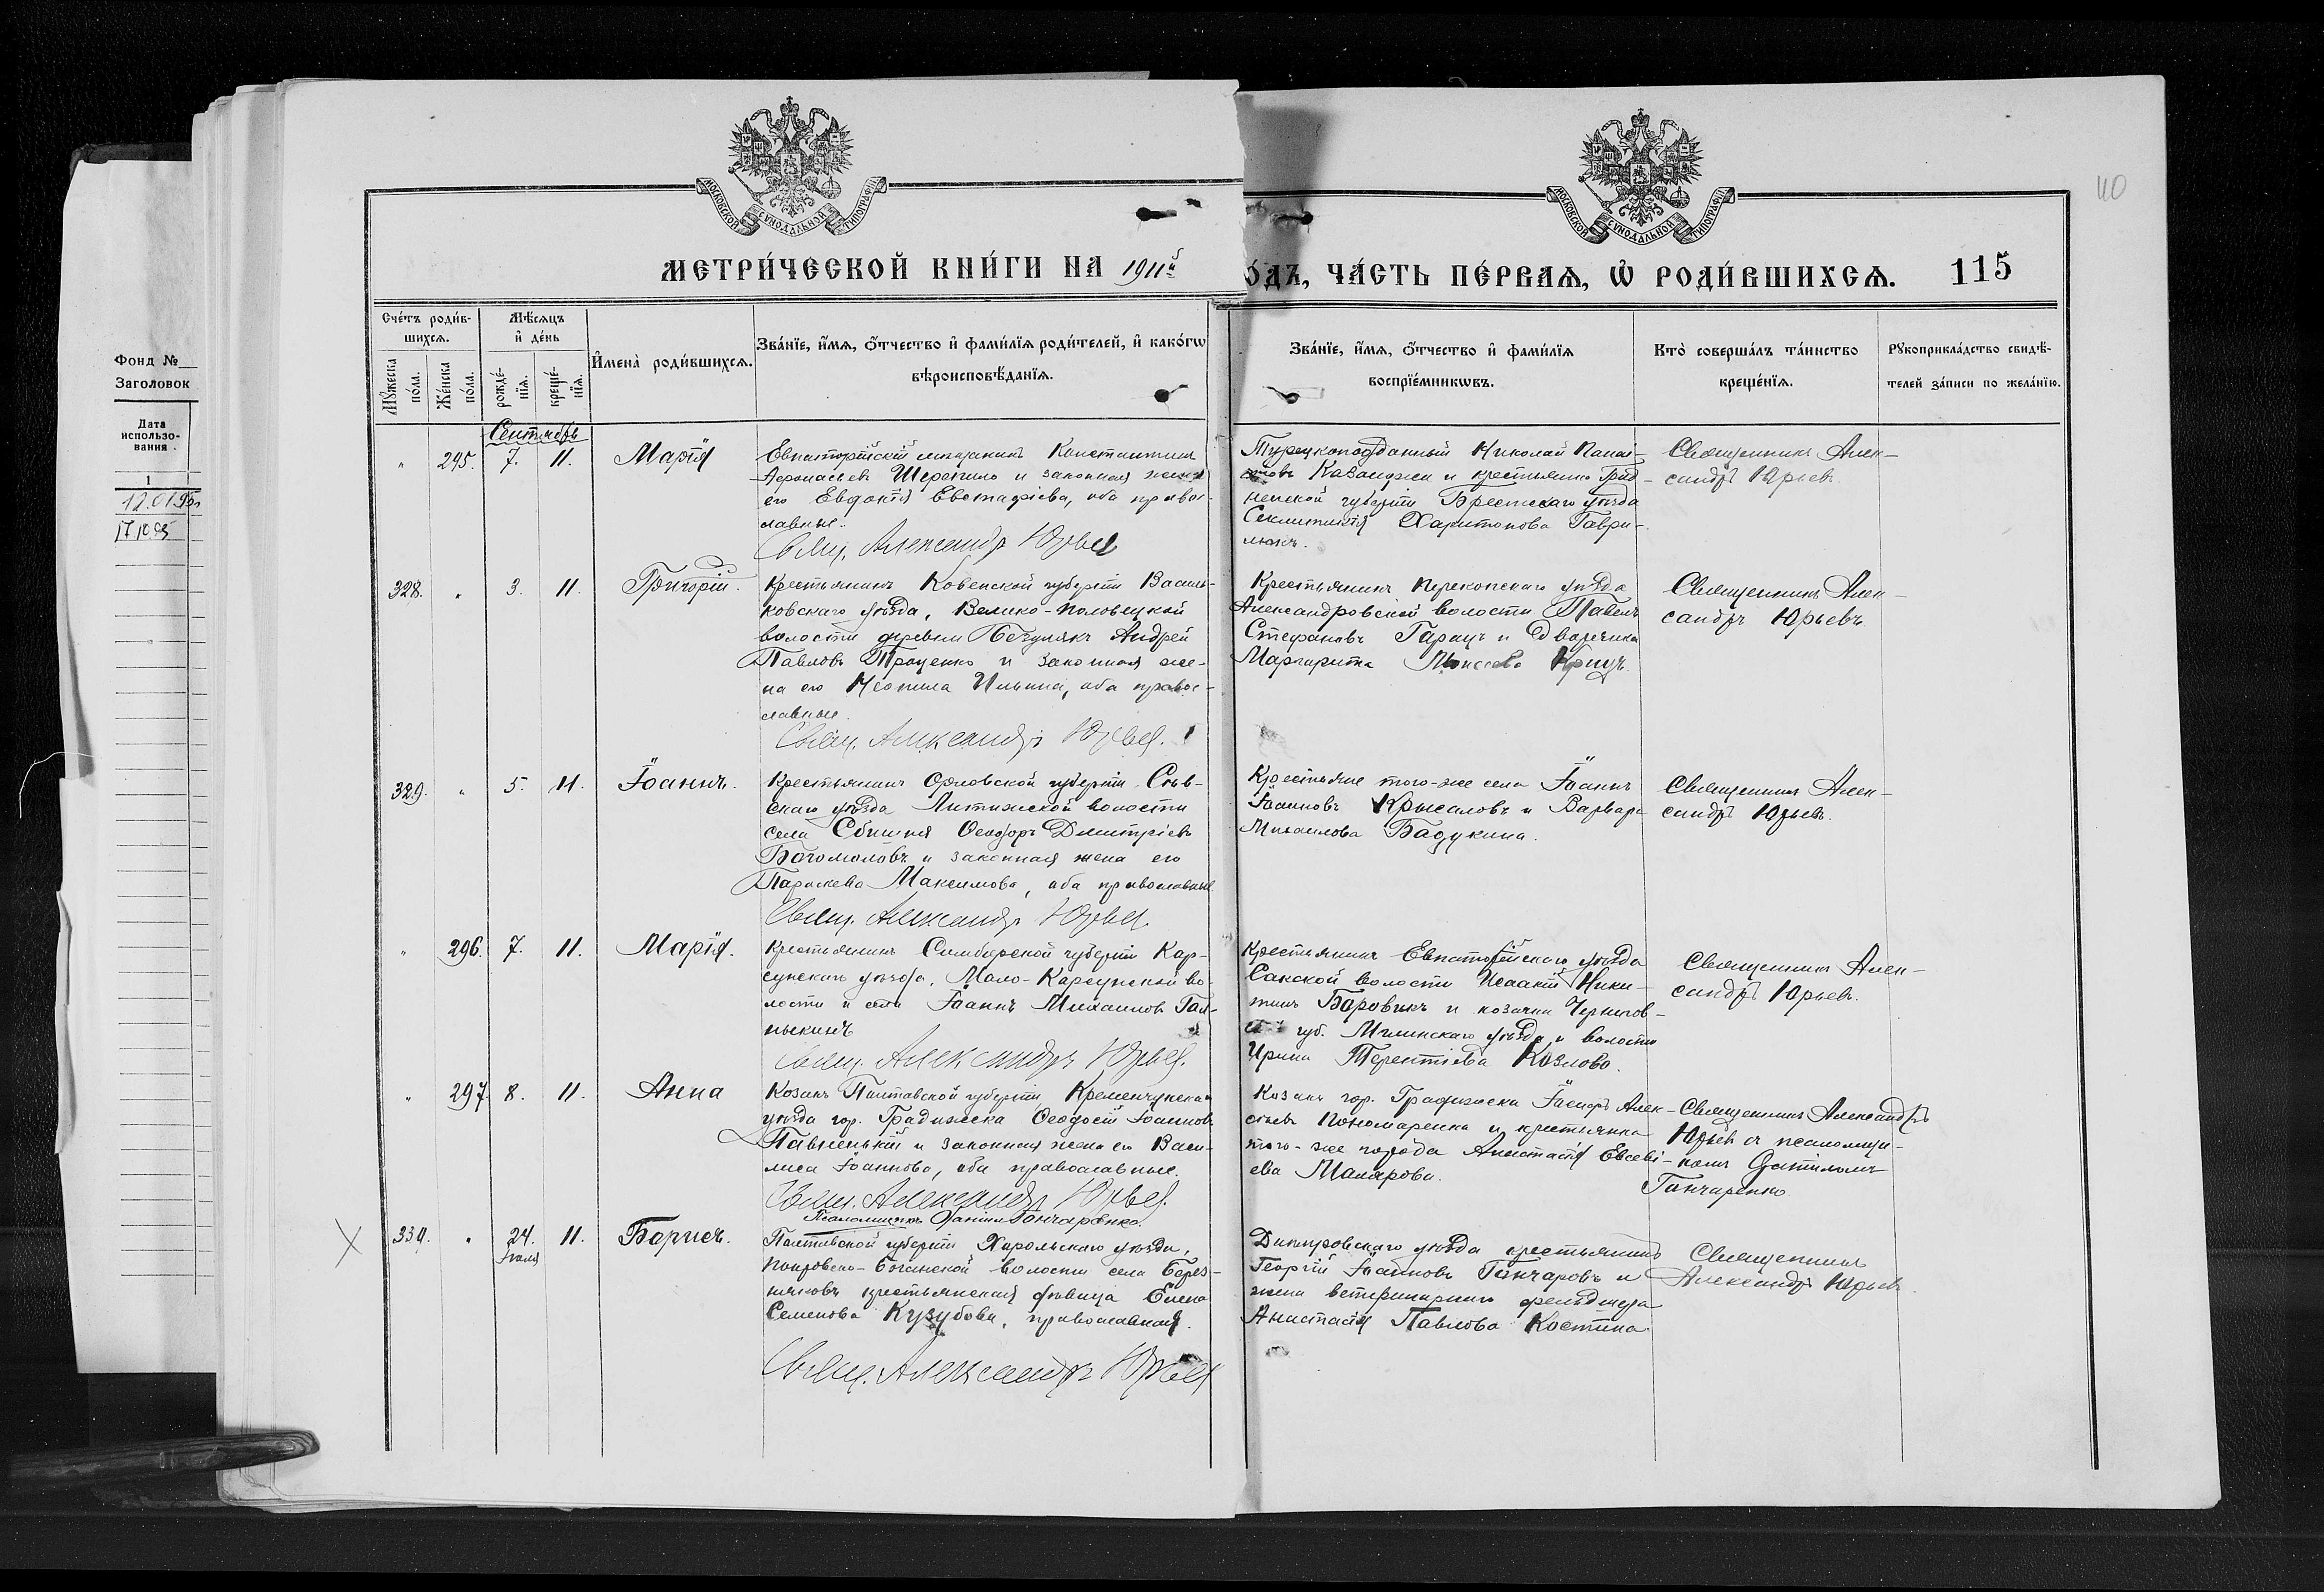 МОСКОВСКОЙ СУНОДАЛЬНОЙ ТИПОГРАФІИ
МОСКОВСКОЙ СУНОДАЛЬНОЙ ТИПОГРАФІИ
110
МЕТРИ́ЧЕСКОЙ КНИ́ГИ НА 1911й
О́ДЪ, ЧА́СТЬ ПЕ́РВАЯ, Ѽ РОДИ́ВШИХСЯ. 115
Сче́тъ роди́в-
шихся.
Мꙋ́жеска по́ла.
Же́нска по́ла.
Мѣ́сяцъ
и҆ де́нь
рожде́-
нїя.
креще́-
нїя.
И҆мена̀ роди́вшихся.
Зва́нїе, и҆́мя, ѻ҆́тчество и҆ фами́лїя роди́телей, и҆ како́гѡ
вѣроисповѣ́данїя.
Зва́нїе, и҆́мя, ѻ҆́тчество и҆ фами́лїя
воспрїе́мникѡвъ.
Кто̀ соверша́лъ та́инство
креще́нїя.
Рꙋкоприкла́дство свидѣ́-
телей за́писи по жела́нїю.
Фонд №
Заголовок
Дата
использо-
вания
1
12.01.95
Сентябрь
" 295. 7. 11. Марія
Евпаторійскій мещанинъ Константинъ
Афонасьевъ и законная жена
его Евдокія Евстафіева, оба право-
славные.
Свящ. Александр Юрьев
Турецкоподданный Николай
Казанджи и крестьянка Грод-
ненской губерніи Брестскаго уѣзда
Харитонова Гаври-
люкъ.
Священникъ Алек-
сандръ Юрьевъ
328. " 3. 11. Григорій.
Крестьянинъ губерніи Василь-
ковскаго уѣзда, Велико-Половецкой
волости деревни Андрей
Павловъ Проценко и законная же-
на его Неонила Ильина, оба право-
славные.
Свящ. Александръ Юрьев.
Крестьянинъ Перекопскаго уѣзда
Александровской волости Павелъ
Стефановъ и Дворянка
Маргарита Моисеева
Священникъ Алек-
сандръ Юрьевъ
329. " 5. 11. Іоаннъ.
Крестьянинъ Орловской губерніи Сѣв-
скаго уѣзда Литижской волости
села Ѳеодоръ Димитріевъ
Богомоловъ и законная жена его
Параскева Максимова, оба православные
Свящ. Александр Юрьев.
Крестьяне того-же села Іоаннъ
Іоанновъ Крысаловъ и Варвара
Михаилова Бадукина.
Священникъ Алек-
сандръ Юрьевъ.
" 296. 7. 11. Марія.
Крестьянинъ Симбирской губерніи Кар-
сунскаго уѣзда, Мало-Карсунской во-
лости и села Іоаннъ Михаиловъ

Свящ. Александръ Юрьев.
Крестьянинъ Евпаторійскаго уѣзда
Сакской волости Исаакій Ники-
тинъ Боровикъ и козачка Чернигов-
ской губ. Мглинскаго уѣзда и волости
Ирина Терентіева Козлова.
Священникъ Алек-
сандръ Юрьевъ.
" 297. 8. 11. Анна
Козакъ Полтавской губерніи, Кременчугскаго
уѣзда гор. Градижска Ѳеодосій Іоанновъ
Павленькій и законная жена его Васи-
лиса Іоаннова, оба православные.
Свящ. Александръ Юрьев.
Псаломщикъ Гончаренко.
Козакъ гор. Градижска Алек-
сіевъ Пономаренко и крестьянка
того-же города Анастасія Евсеві-
ева Малярова.
Священникъ Александръ
Юрьевъ съ псаломщи-
комъ
Гончаренко
330. " 24. Іюля 11. Борисъ.
Полтавской губерніи Хорольскаго уѣзда,
Покровско-Богачской волости села Берез-
няковъ крестьянская дѣвица Елена
Семенова Кузубова, православная.
Свящ. Александръ Юрьев
Днѣпровскаго уѣзда крестьянинъ
Георгій Іоанновъ Гончаровъ и
жена ветеринарнаго фельдшера
Анастасія Павлова Костина
Священникъ
Александръ Юрьевъ.